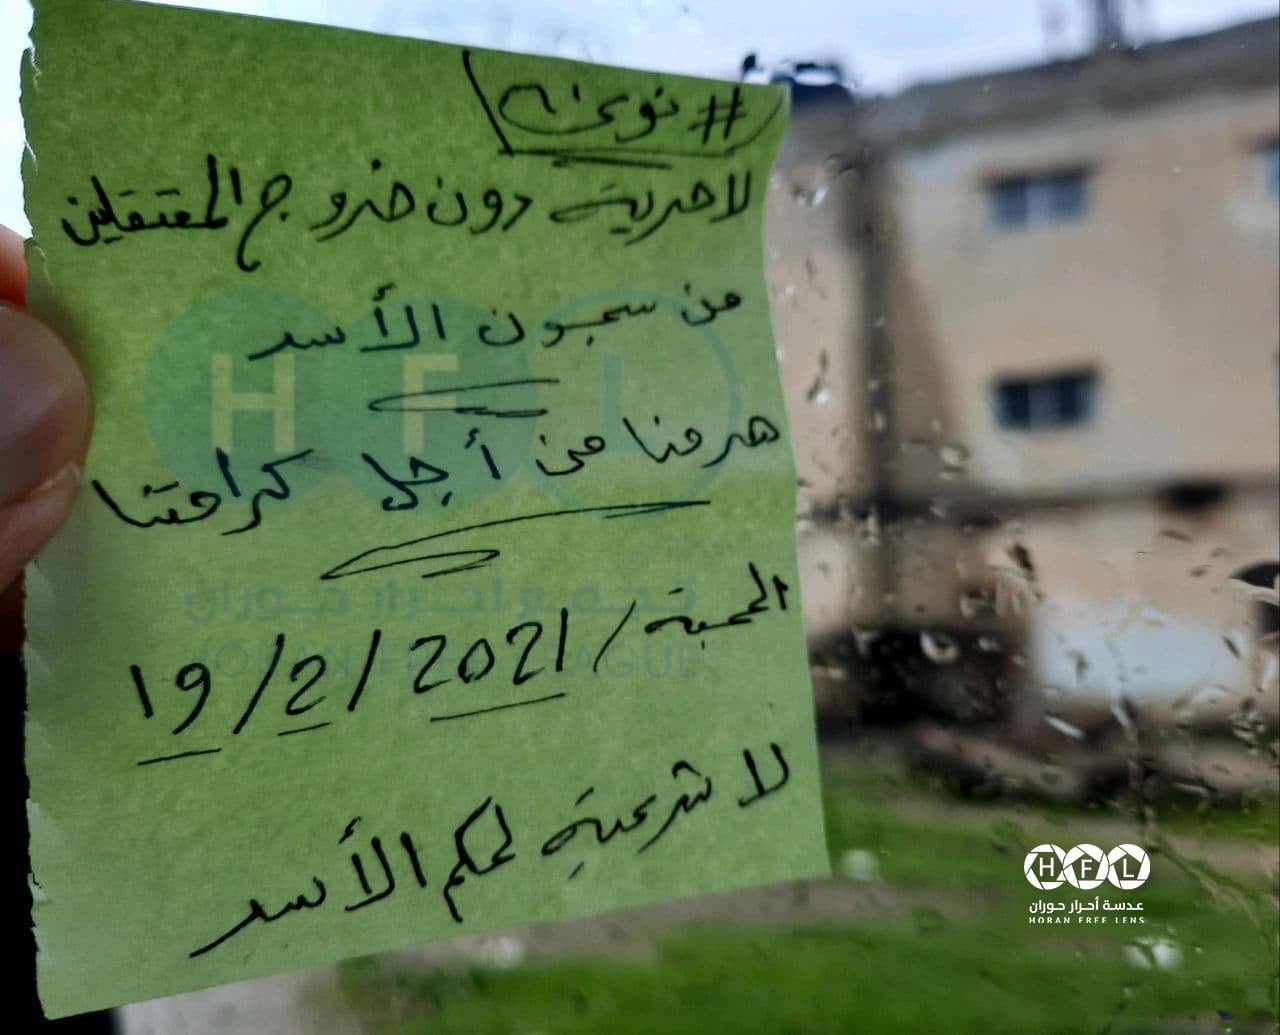 لا حرية دون خروج المعتقلين
من سجون الأسد
هرمنا من أجل كرامتنا
المحجة / 19/2/2021
لا شرعية لحكم الأسد
HFL
تجمع أحرار حوران
HORAN FREE LEAGUE
HFL
عدسة أحرار حوران
HORAN FREE LENS